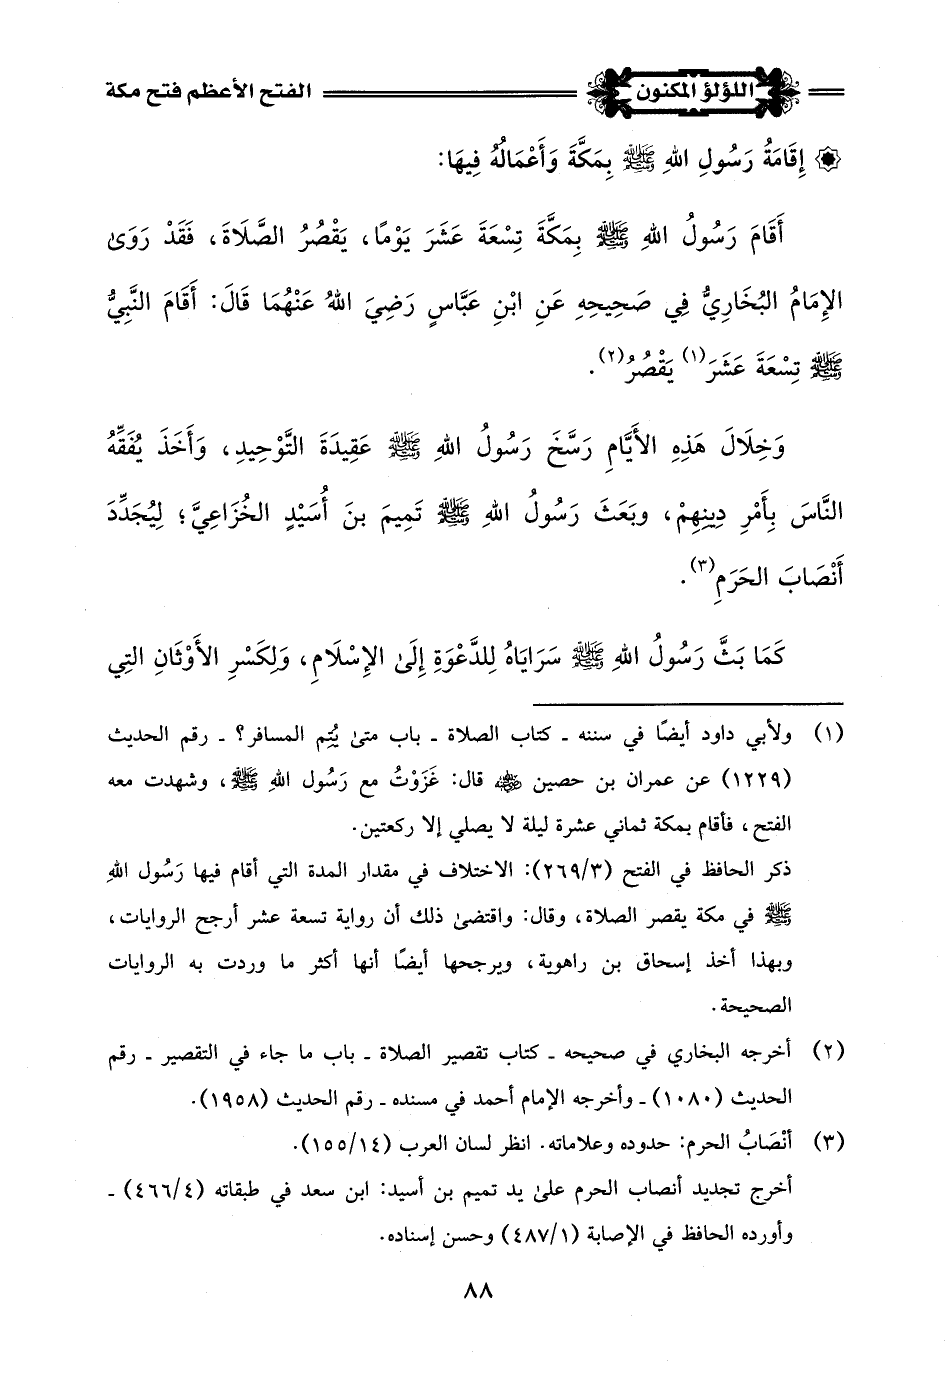 اللؤلؤ المكنون الفتح الأعظم فتح مكة
إِقَامَةُ رَسُولِ اللهِ ﷺ بِمَكَّةَ وَأَعْمَالُهُ فِيهَا:
أَقَامَ رَسُولُ اللهِ ﷺ بِمَكَّةَ تِسْعَةَ عَشَرَ يَوْمًا، يَقْصُرُ الصَّلَاةَ، فَقَدْ رَوَىٰ
الإِمَامُ البُخَارِيُّ فِي صَحِيحِهِ عَنِ ابْنِ عَبَّاسٍ رَضِيَ اللهُ عَنْهُمَا قَالَ: أَقَامَ النَّبِيُّ
ﷺ تِسْعَةَ عَشَرَ(١) يَقْصُرُ(٢).
وَخِلَالَ هَذِهِ الأَيَّامِ رَسَّخَ رَسُولُ اللهِ ﷺ عَقِيدَةَ التَّوْحِيدِ، وَأَخَذَ يُفَقِّهُ
النَّاسَ بِأَمْرِ دِينِهِمْ، وبَعَثَ رَسُولُ اللهِ ﷺ تَمِيمَ بنَ أُسَيْدٍ الخُزَاعِيَّ؛ لِيُجَدِّدَ
أَنْصَابَ الحَرَمِ(٣).
كَمَا بَثَّ رَسُولُ اللهِ ﷺ سَرَايَاهُ لِلدَّعْوَةِ إِلَىٰ الإِسْلَامِ، وَلِكَسْرِ الأَوْثَانِ التِي
(١) ولأبي داود أيضًا في سننه ـ كتاب الصلاة ـ باب متىٰ يُتِم المسافر؟ ـ رقم الحديث
(١٢٢٩) عن عمران بن حصين ﵁ قال: غَزَوْتُ مع رَسُول اللهِ ﷺ، وشهدت معه
الفتح، فأقام بمكة ثماني عشرة ليلة لا يصلي إلا ركعتين.
ذكر الحافظ في الفتح (٢٦٩/٣): الاختلاف في مقدار المدة التي أقام فيها رَسُول اللهِ
ﷺ في مكة يقصر الصلاة، وقال: واقتضىٰ ذلك أن رواية تسعة عشر أرجح الروايات،
وبهذا أخذ إسحاق بن راهوية، ويرجحها أيضًا أنها أكثر ما وردت به الروايات
الصحيحة.
(٢) أخرجه البخاري في صحيحه ـ كتاب تقصير الصلاة ـ باب ما جاء في التقصير ـ رقم
الحديث (١٠٨٠) ـ وأخرجه الإمام أحمد في مسنده ـ رقم الحديث (١٩٥٨).
(٣) أنْصَابُ الحرم: حدوده وعلاماته. انظر لسان العرب (١٥٥/١٤).
أخرج تجديد أنصاب الحرم علىٰ يد تميم بن أسيد: ابن سعد في طبقاته (٤٦٦/٤) ـ
وأورده الحافظ في الإصابة (٤٨٧/١) وحسن إسناده.
٨٨